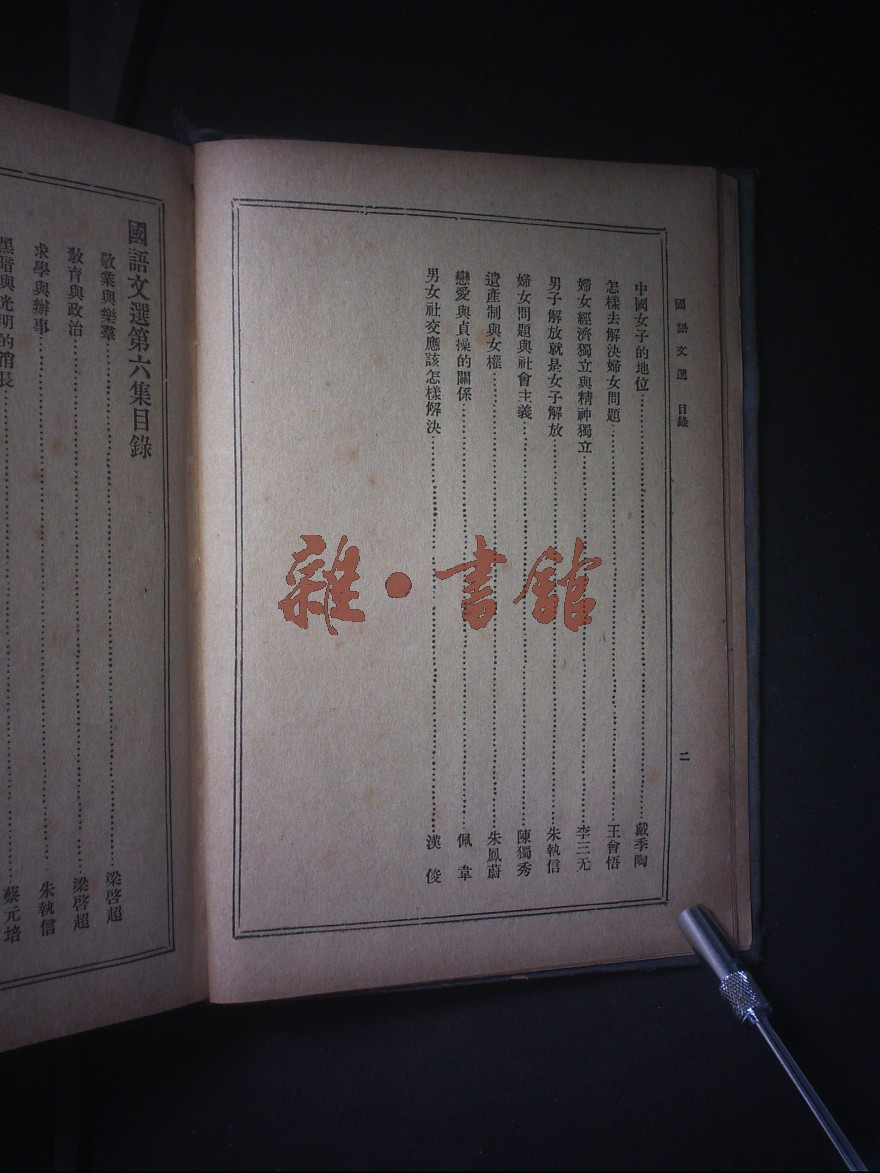 國語文選 目錄 二
中國女子的地位……戴季陶
怎樣去解決婦女問題……王會悟
婦女經濟獨立與精神獨立……李三无
男子解放就是女子解放……朱執信
婦女問題與社會主義……陳獨秀
遺產制與女權……朱鳳蔚
戀愛與貞操的關係……佩韋
男女社交應該怎樣解決……漢俊
國語文選第六集目錄
敬業與樂羣……梁啓超
教育與政治……梁啓超
求學與辦事……朱執信
黑暗與光明的消長……蔡元培
雜・書館